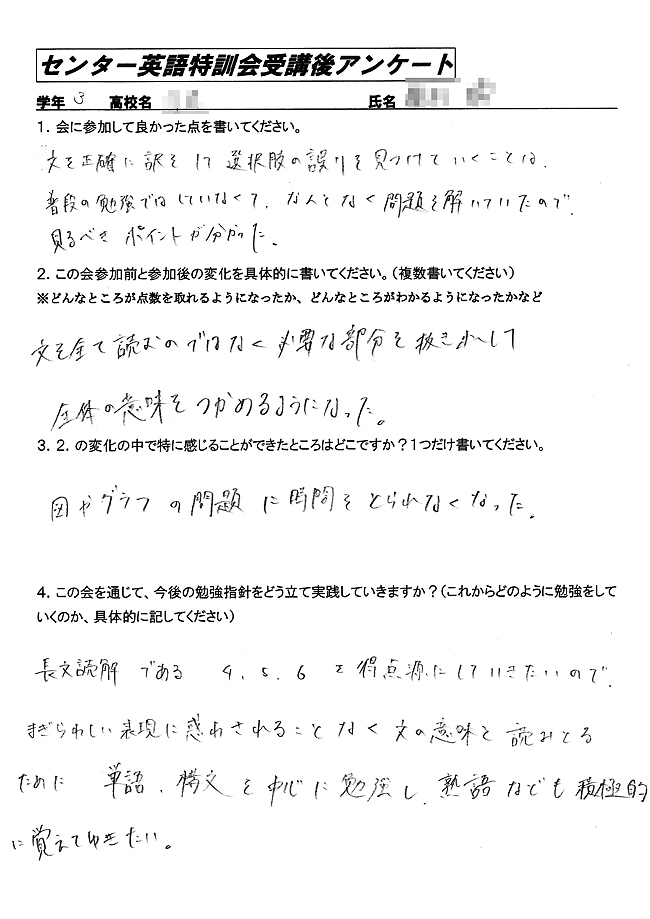 センター英語特訓会受講後アンケート
学年 3 高校名 氏名
1. 会に参加して良かった点を書いてください。
文を正確に訳をして選択肢の誤りを見つけていくことは、
普段の勉強ではしていなくて、なんとなく問題を解いていたので、
見るべきポイントが分かった。
2. この会参加前と参加後の変化を具体的に書いてください。(複数書いてください)
※どんなところが点数を取れるようになったか、どんなところがわかるようになったかなど
文を全て読むのではなく必要な部分を抜き出して
全体の意味をつかめるようになった。
3. 2. の変化の中で特に感じることができたところはどこですか?1つだけ書いてください。
図やグラフの問題に時間をとられなくなった。
4. この会を通じて、今後の勉強指針をどう立て実践していきますか?(これからどのように勉強をして
いくのか、具体的に記してください)
長文読解である 4、5、6 を得点源にしていきたいので、
まぎらわしい表現に惑わされることなく文の意味を読みとる
ために 単語、構文を中心に勉強し、熟語なども積極的
に覚えてゆきたい。